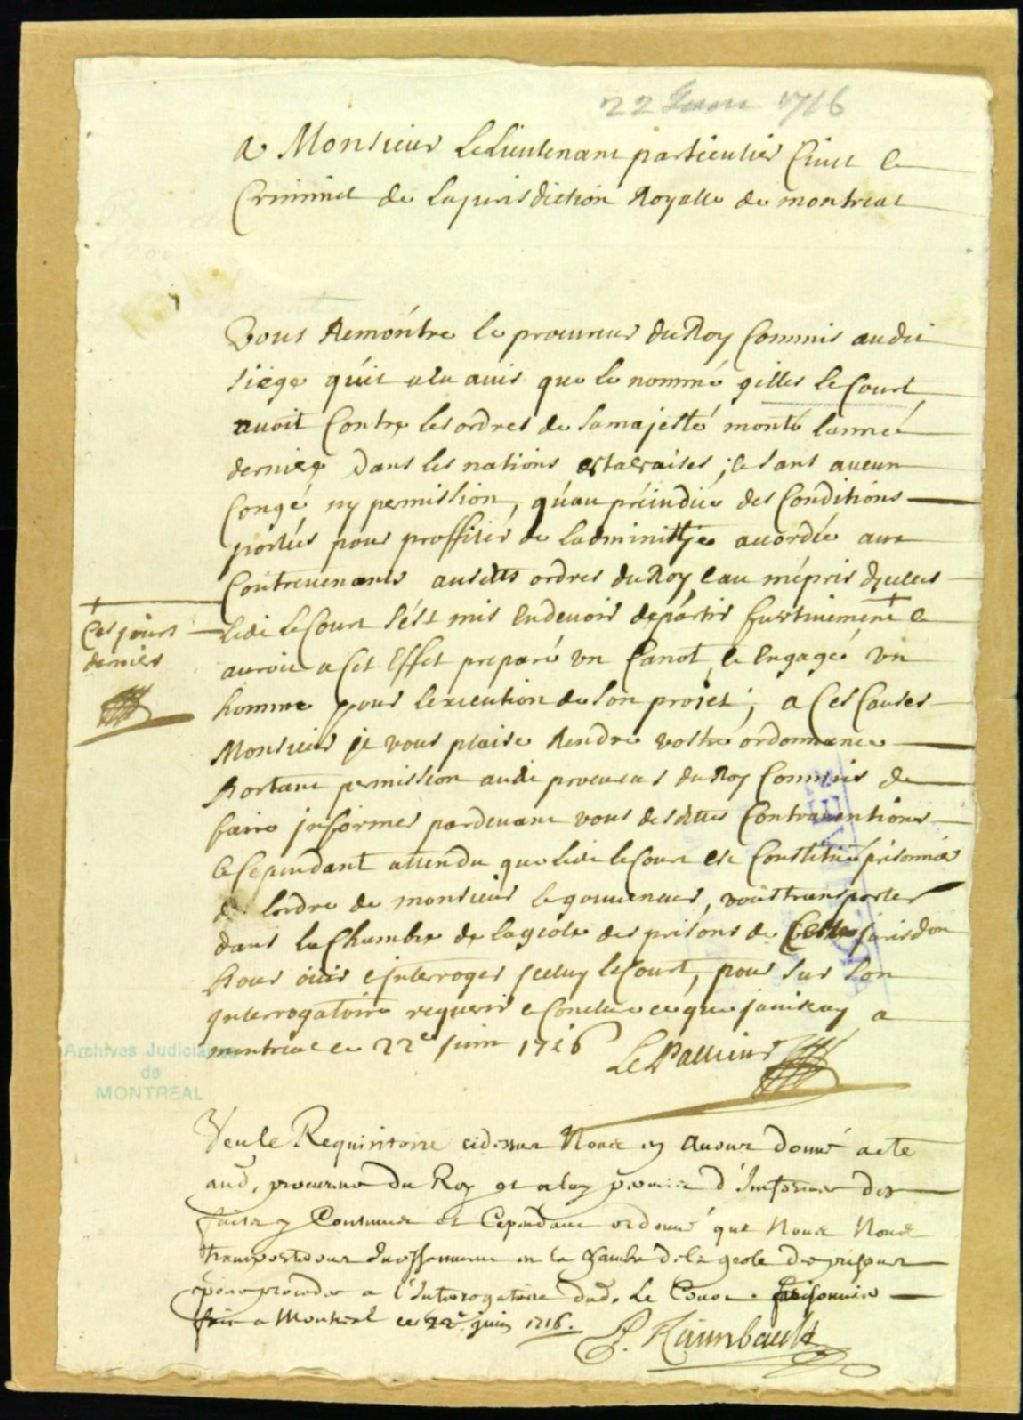 22 Juin 1716
A Monsieur Le Lieutenant particulier Civil &
Criminel de La jurisdiction Royalle de montreal
Vous Remontre le procureur du Roy Commis audit
siege quil a eu avis que le nommé gilles le Court
avoit Contre les ordres de sa majesté monté lanneé
derniere Dans les nations & sans aucun
Congé ny permission, qu'au préjudice des Conditions
portéés pour proffiter de Ladministie accordée aux
Contrevenants ausdits ordres du Roy & au mépris d'yceux
Ces jours
derniers
Ledt Le Court s'est mis En devoir de partir furtivement &
auroit a Cet Effet preparé un Canot & Engagé un
homme pour lexecution de son projet; a Ces Causes
Monsieur il vous plaise Rendre vostre ordonnance
Portant permission audit procureur du Roy Commis de
faire jnformer pardevant vous desdittes Contraventions
& Cependant attendu que ledt le Court est Constitué prisonnier
de lordre de monsieur le gouverneur, vous transporter
dans la Chambre de la geole des prisons de Cette Jurisdon
Pour ouir & jnterroger jceluy le Court, pour sur son
jnterrogatoire requerir & Conclure ce que javiseray a
montreal ce 22e Juin 1716 Le Pallieur
Archives Judiciaires
de
MONTREAL
Veu le Requisitoire cidessus Nous en avons donné acte
aud. procureur du Roy et a luy permis d'Informer des
faits y Contenus et Cependant ordonné que Nous Nous
transporterons en la chambre de la geole des prisons
pour proceder a l'Interrogatoire dud. Le Court prisonnier
fait a Montreal ce 22e juin 1716. P. Raimbault